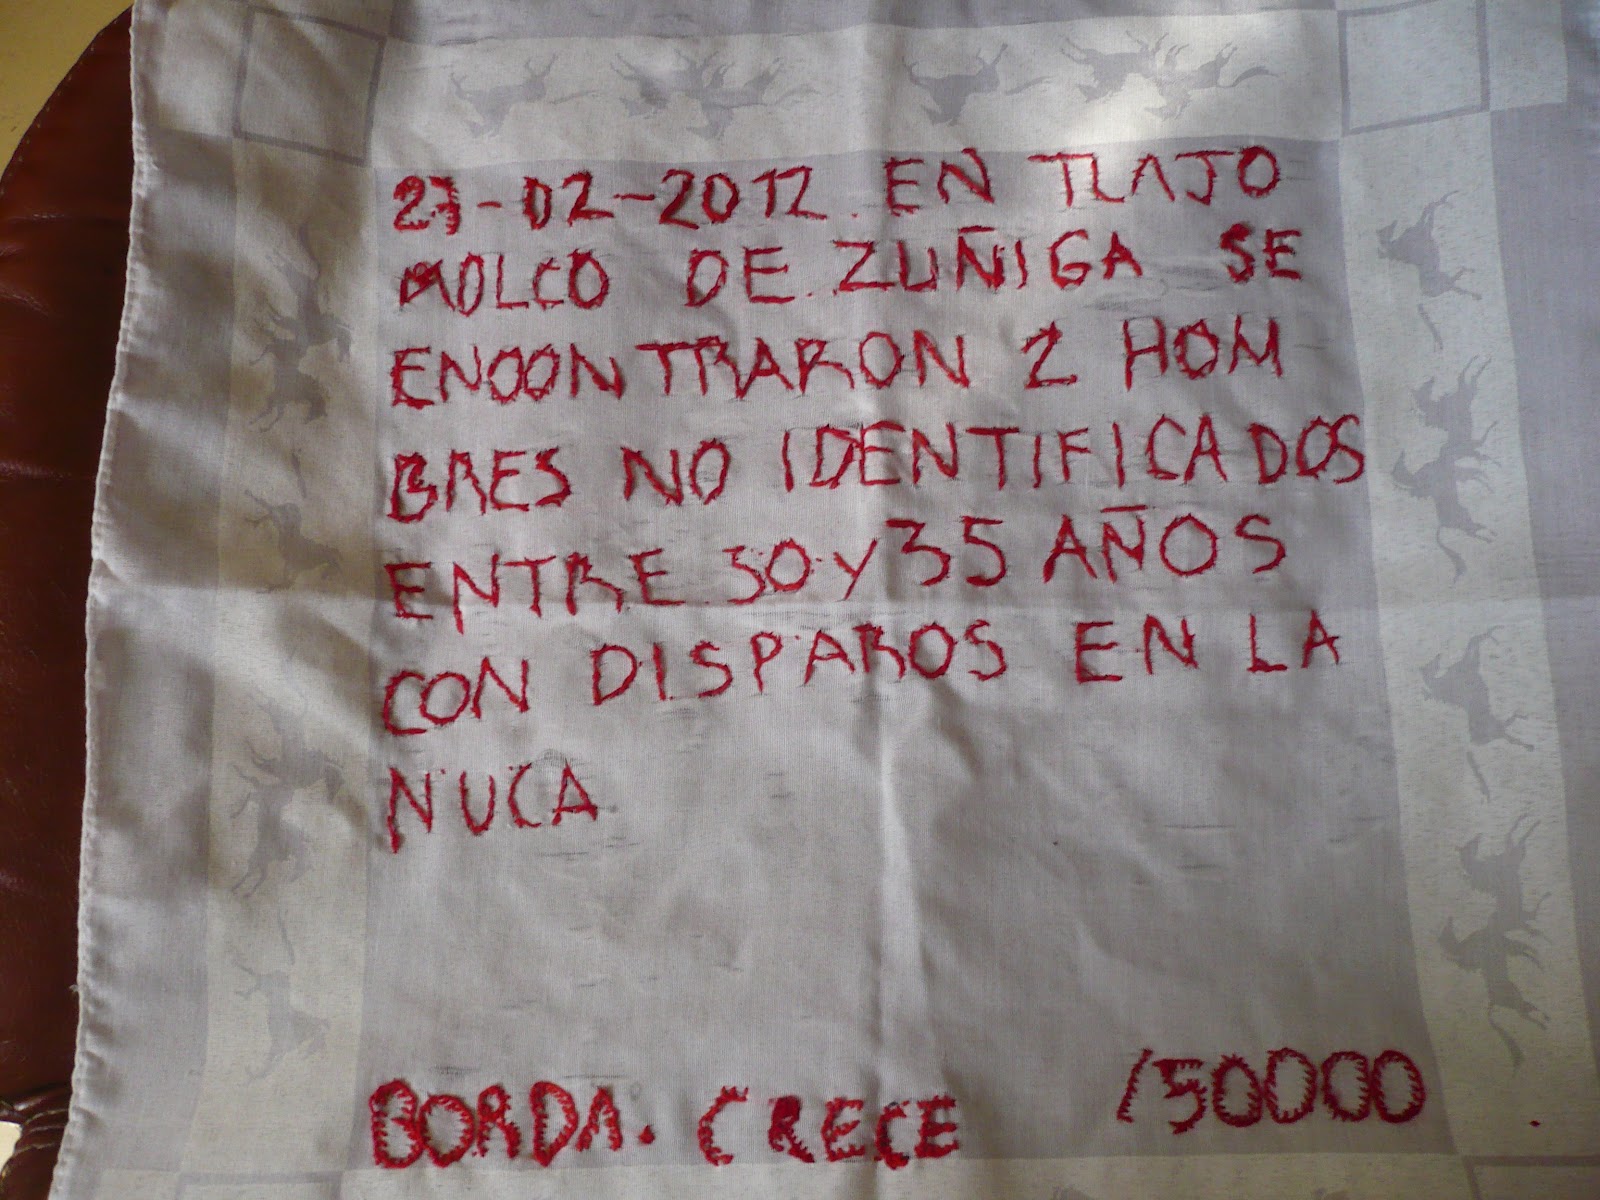 27-02-2012 EN TLAJO
MOLCO DE ZUÑIGA SE
ENCONTRARON 2 HOM
BRES NO IDENTIFICADOS
ENTRE 30 Y 35 AÑOS
CON DISPAROS EN LA
NUCA
BORDA. CRECE /50000